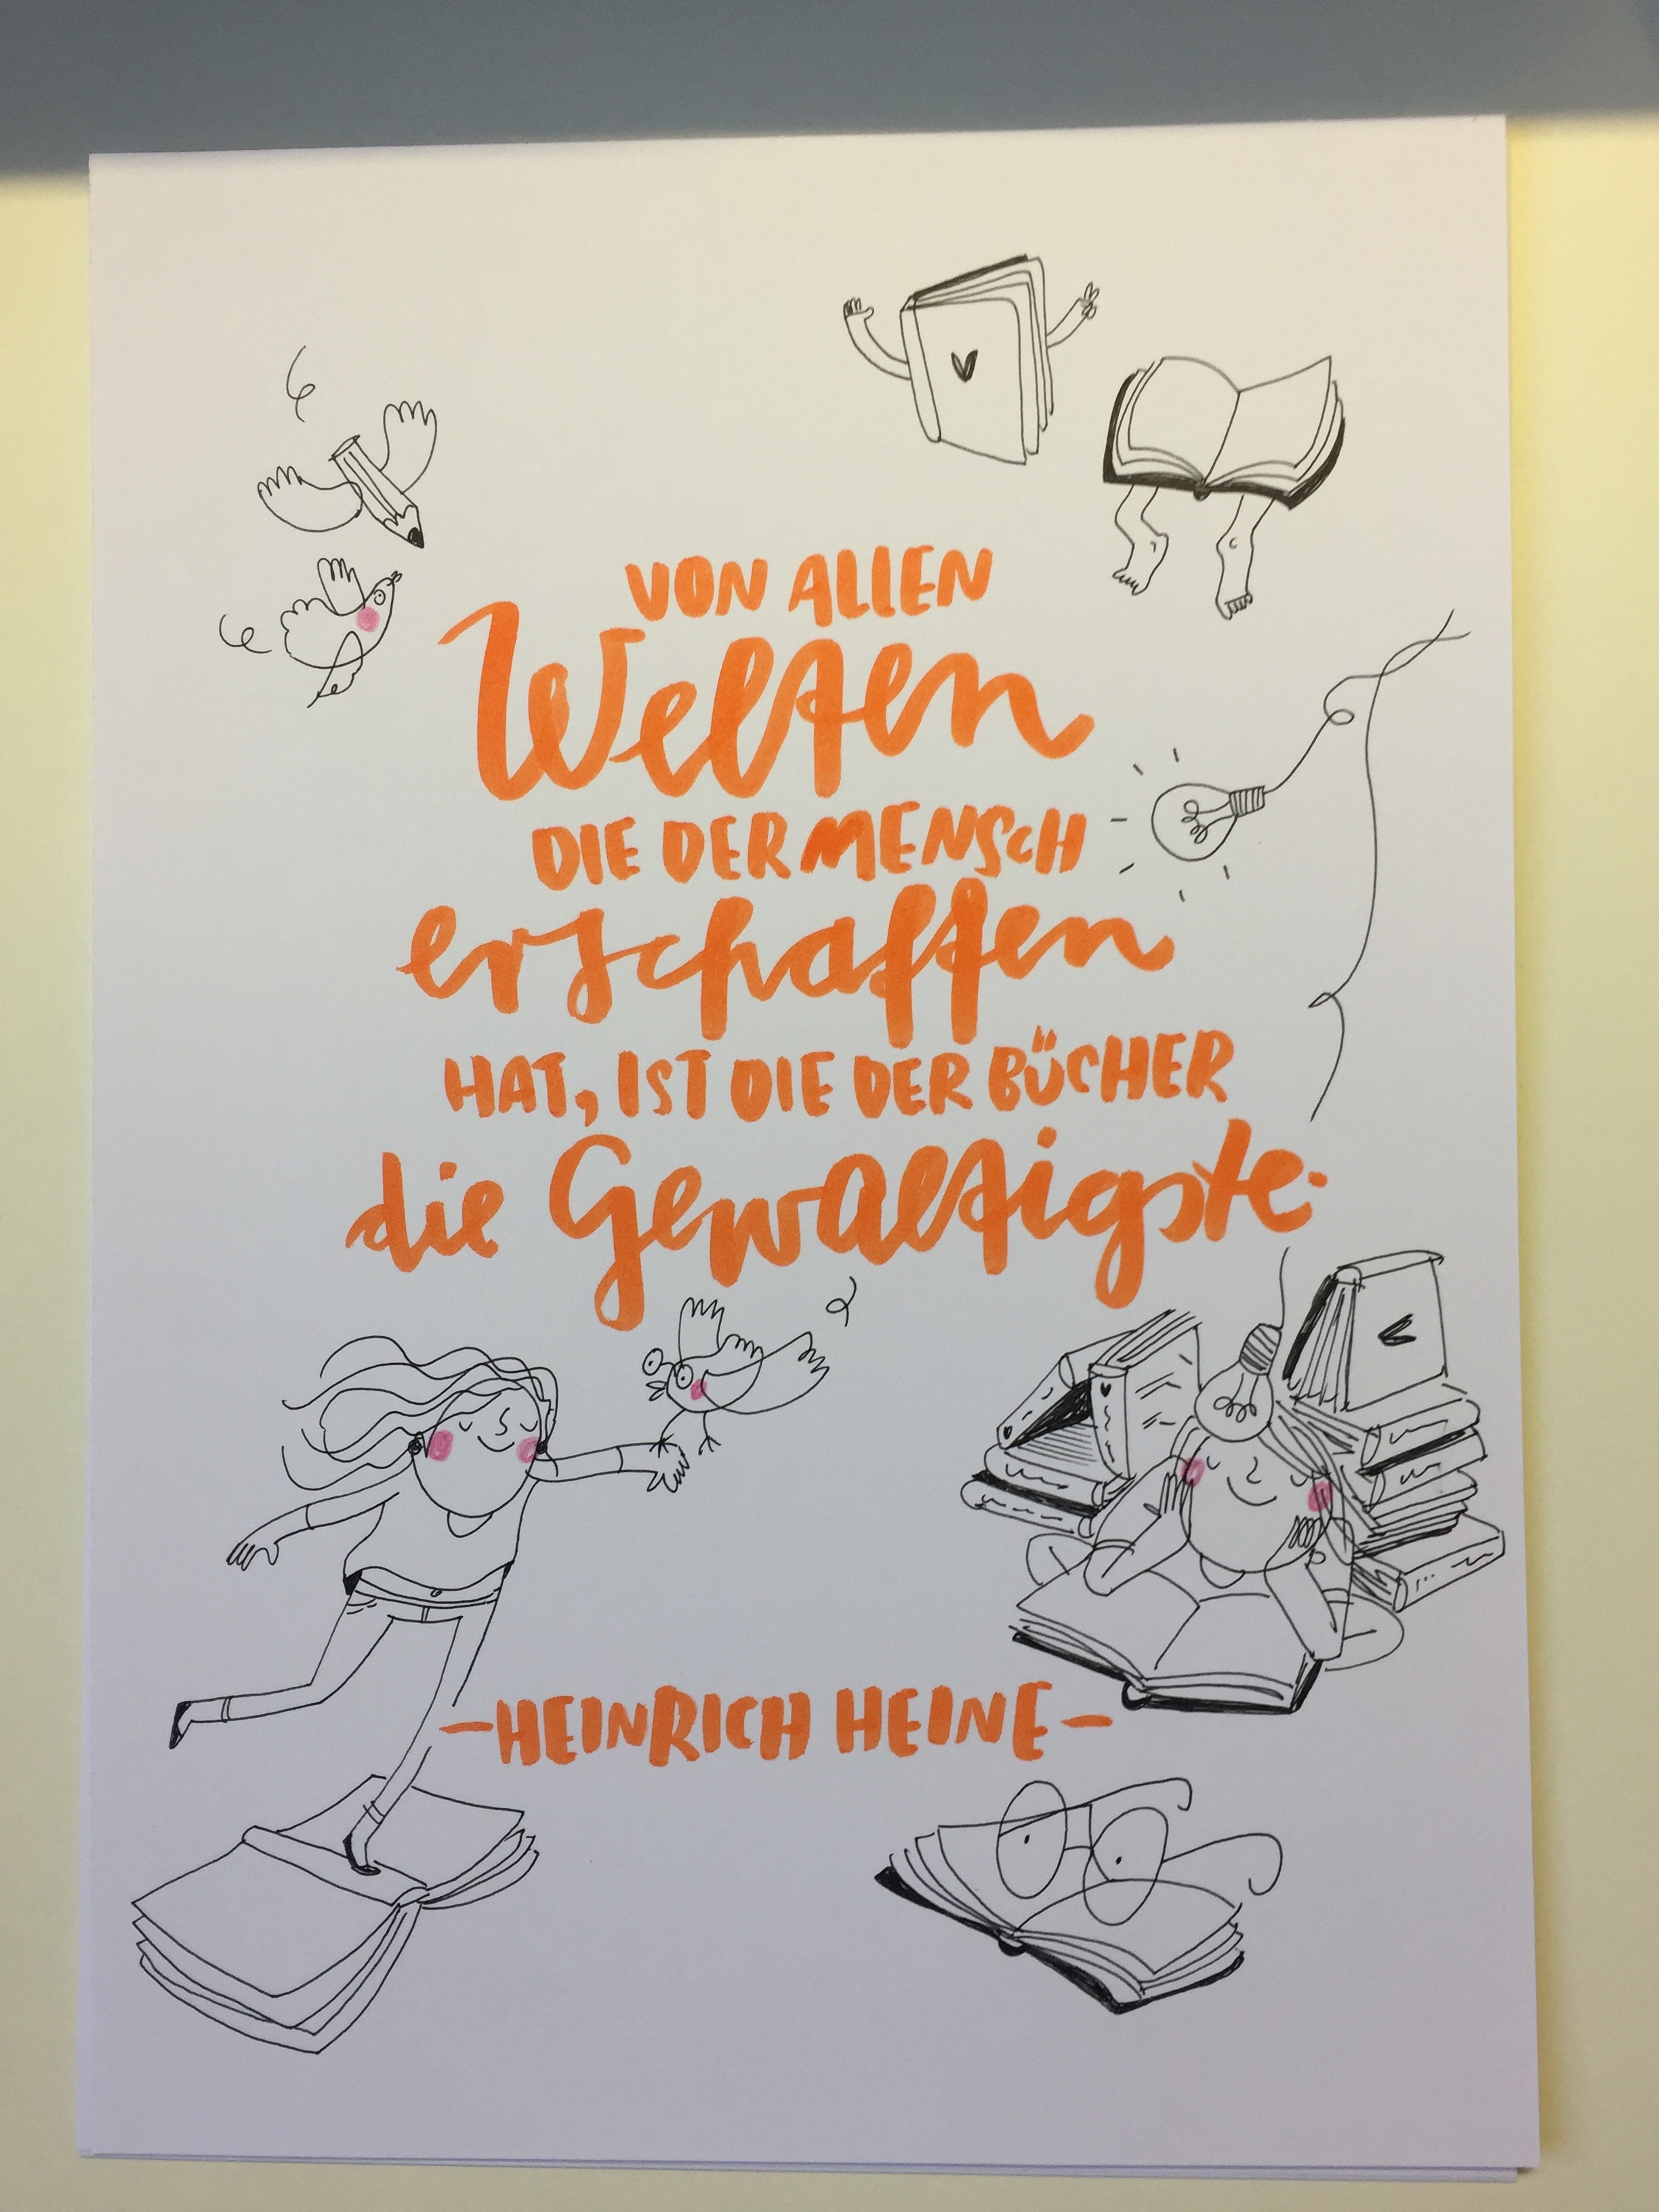 VON ALLEN
Welten
DIE DER MENSCH
erschaffen
HAT, IST DIE DER BÜCHER
die Gewaltigste.
-HEINRICH HEINE-